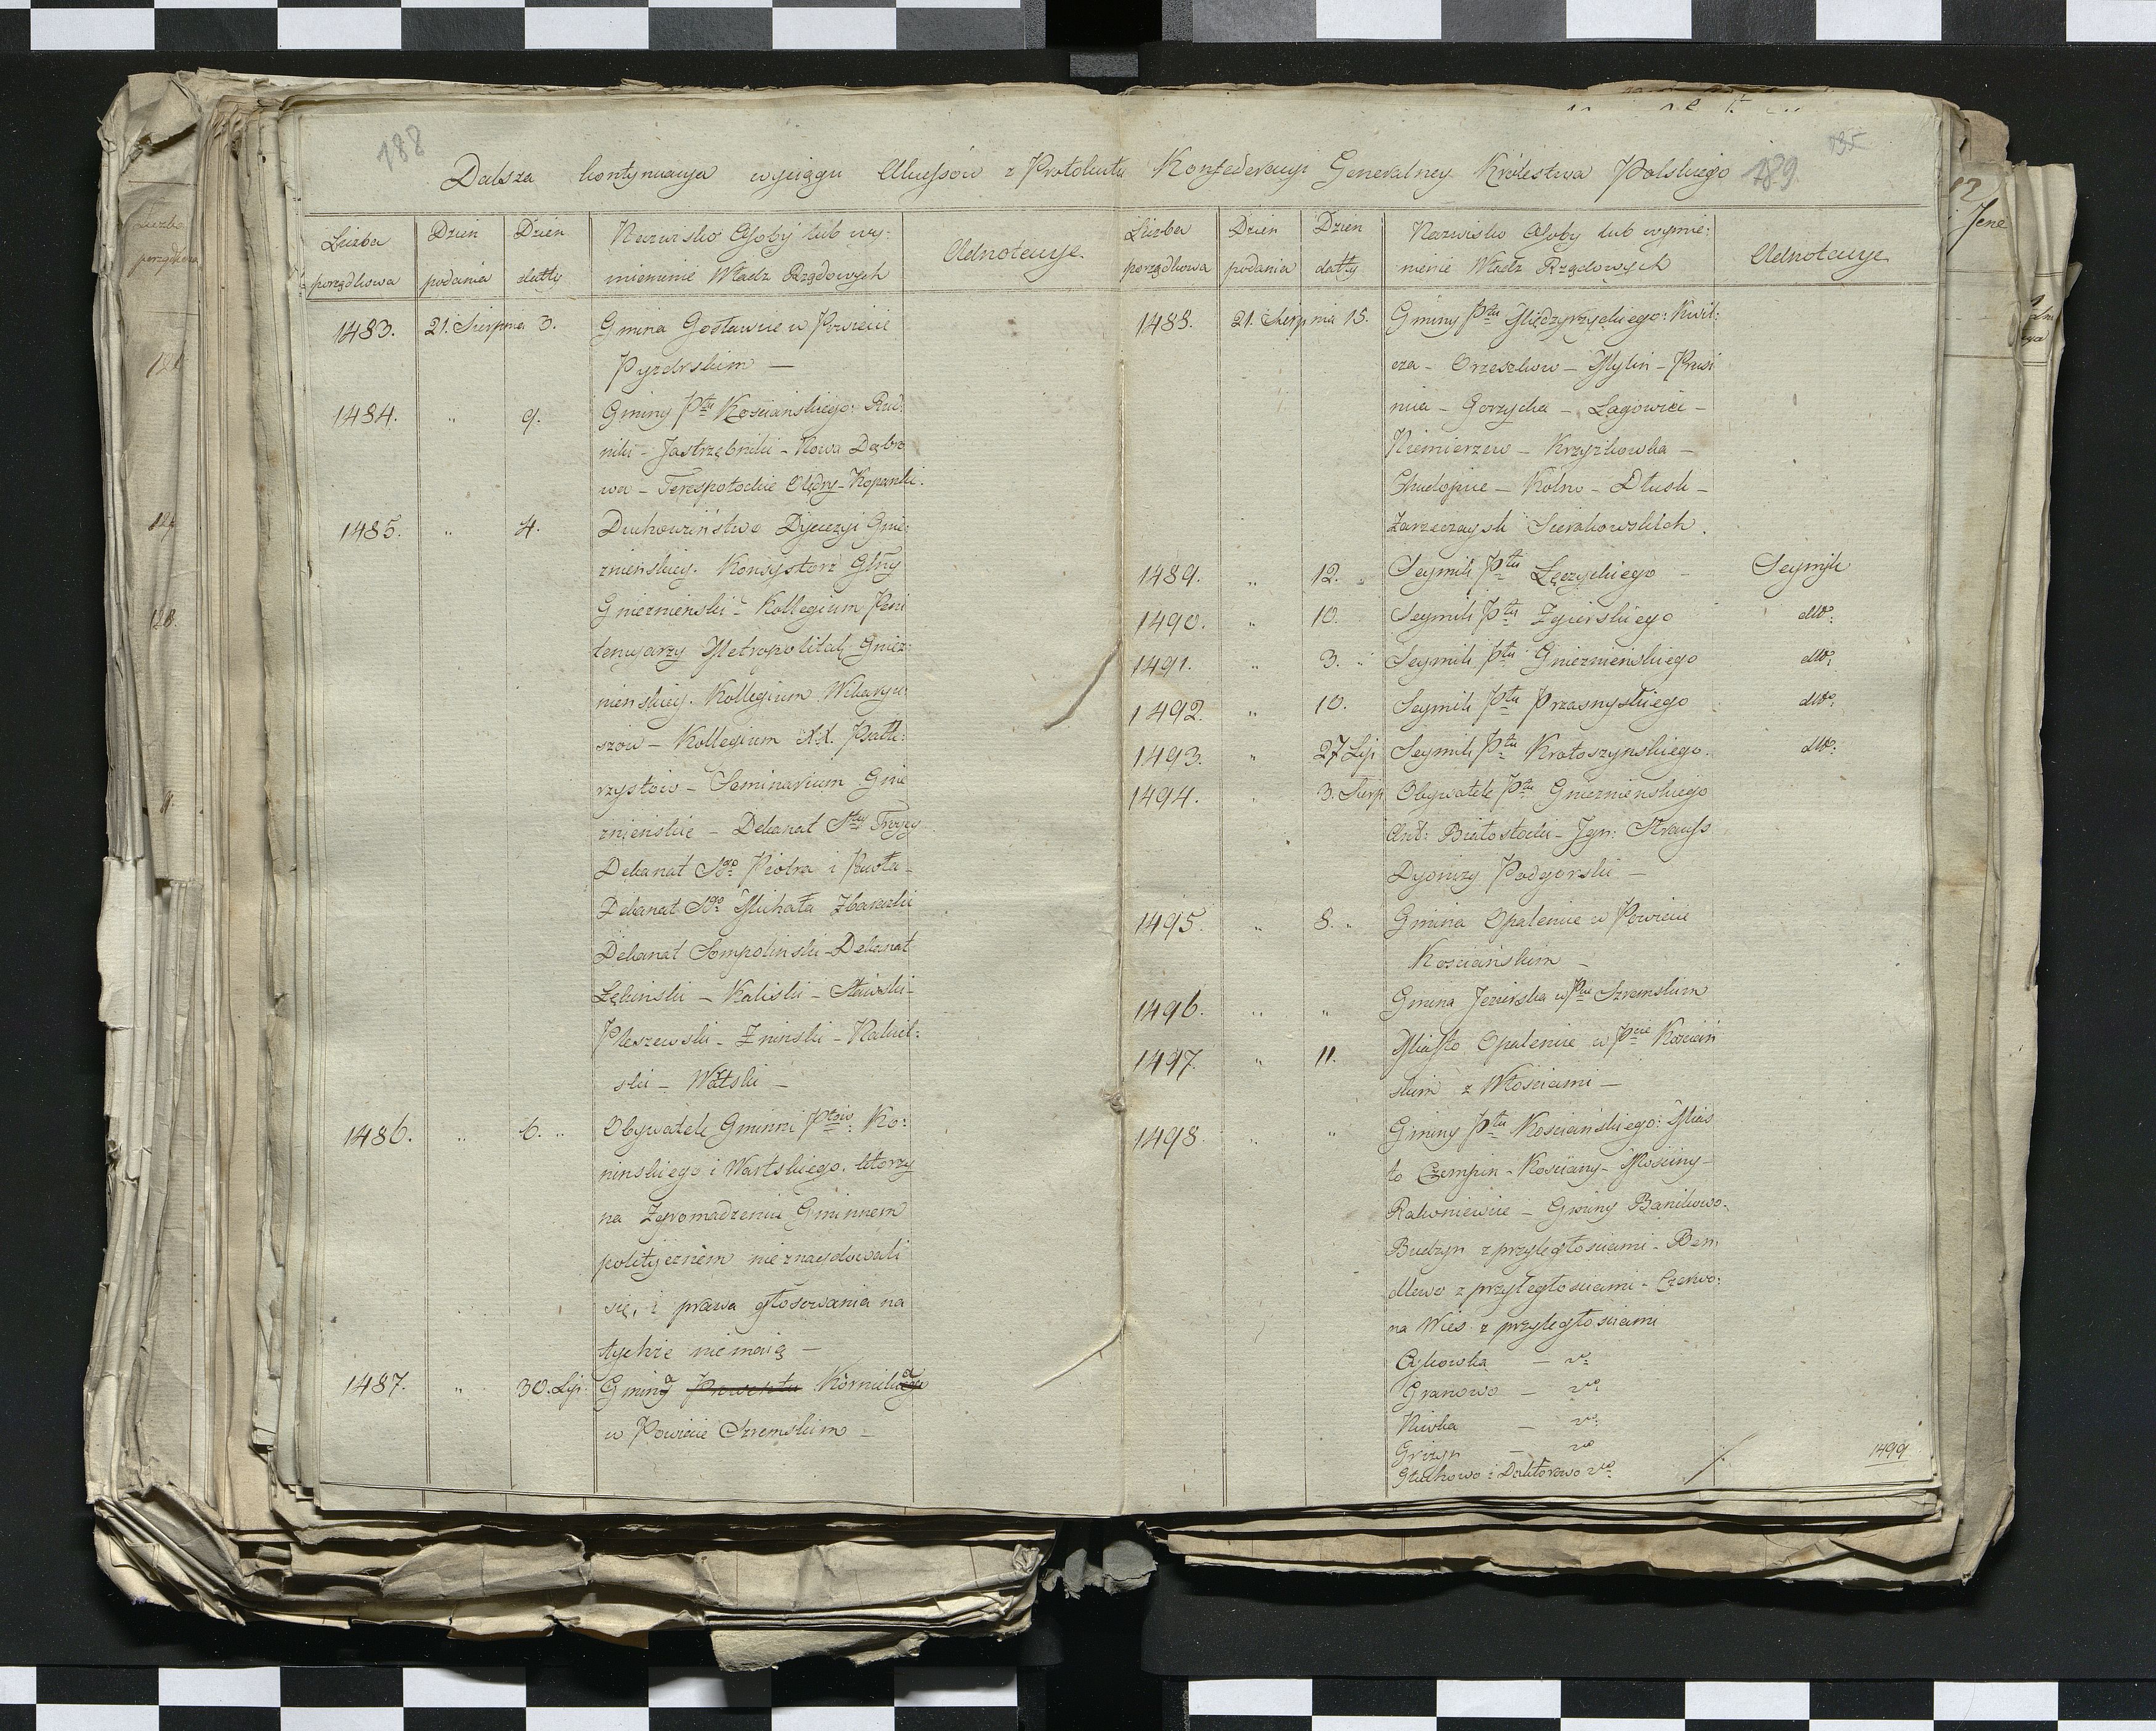 188
Dalsza kontynuacya wyciągu Akcessów z Protokułu Konfederacyi Generalney Królestwa Polskiego
189
Liczba porządkowa
Dzień podania
Dzień datty
Nazwisko Osoby lub wy:
mienienie Władz Rządowych
Adnotacye
1483. 21. Sierpnia 3. Gmina Gosławice w Powiecie
Pyzdrskim —
1484. " 9. Gminy Ptu Kościańskiego: Rud:
niki – Jastrzębniki – Nowa Dąbro
wa – Terespotockie Olędry – Kopanki.
1485. " 4. Duchowieństwo Dyecezyi Gnie:
znieńskiey. Konsystorz Glny
Gnieznieński – Kollegium Peni
tencyarzy Metropolital: Gniez:
nienskiey. Kollegium Wikaryu:
szow – Kollegium XX. Psałte:
rzystów – Seminarium Gnie
znieńskie – Dekanat Stey Troycy
Dekanat Sgo Piotra i Pawła –
Dekanat Sgo Michała
Dekanat Sompolinski – Dekanat
– Kaliski – Stawski –
Pleszewski – Zninski – Nakiel:
ski – Watski –
1486. " 6. " Obywatele Gminni Ptów: Ko:
ninskiego i Wartskiego, którzy
na Zgromadzeniu Gminnem
politycznem nieznaydowali
się, i prawa głosowania na
tychże niemaią —
1487. " 30. Lip: Gmina Powiatu Kornicka
w Powiecie Szremskim —
Liczba porządkowa
Dzień podania
Dzień datty
Nazwisko Osoby lub wymie:
nienie Władz Rządowych
Adnotacye
1488. 21. Sierpnia 15. Gminy Ptu Międzyrzyckiego: Kwil:
cza – Orzeszkow – Mylin – Prusi
mia – Gorzycka – Łagowiec –
Niemierzew – Krzyżkowka –
Chudopsice – Kolno – Dłusk –
Zarzeczaysk Sierakowskich.
1489. " 12. " Seymik Ptu Łęczyckiego – Seymik
1490. " 10. Seymik Ptu Zgierskiego dtto:
1491. " 3. " Seymik Ptu Gnieznieńskiego dtto:
1492. " 10. Seymik Ptu Przasnyskiego dtto:
1493. " 27 Lip Seymik Ptu Krotoszynskiego. dtto:
1494. " 3. Sierp Obywatele Ptu Gnieznienskiego
Ant: Białostocki – Ign: Strauss
Dyonizy Podgorski —
1495. " 8. " Gmina Opalenice w Powiecie
Kosciańskim –
1496. " " Gmina Jezierska w Pcie Szremskim
1497. " 11. Miasto Opalenice w Pcie Kościań
skim z Włościami —
1498 " " Gminy Ptu Kosciańskiego: Mias
to Czempin – Kosciany – Mosciny –
Rakoniewice – Gminy Banikowo.
Budzyn z przyległosciami – Ben
dlewo z przyległosciami – Czerwo:
na Wies z przyległosciami
Cykowka — vo
Granowo — vo
Niwka — vo
Gryżyn — vo
Głuchowo i Doktorowo vo
1499